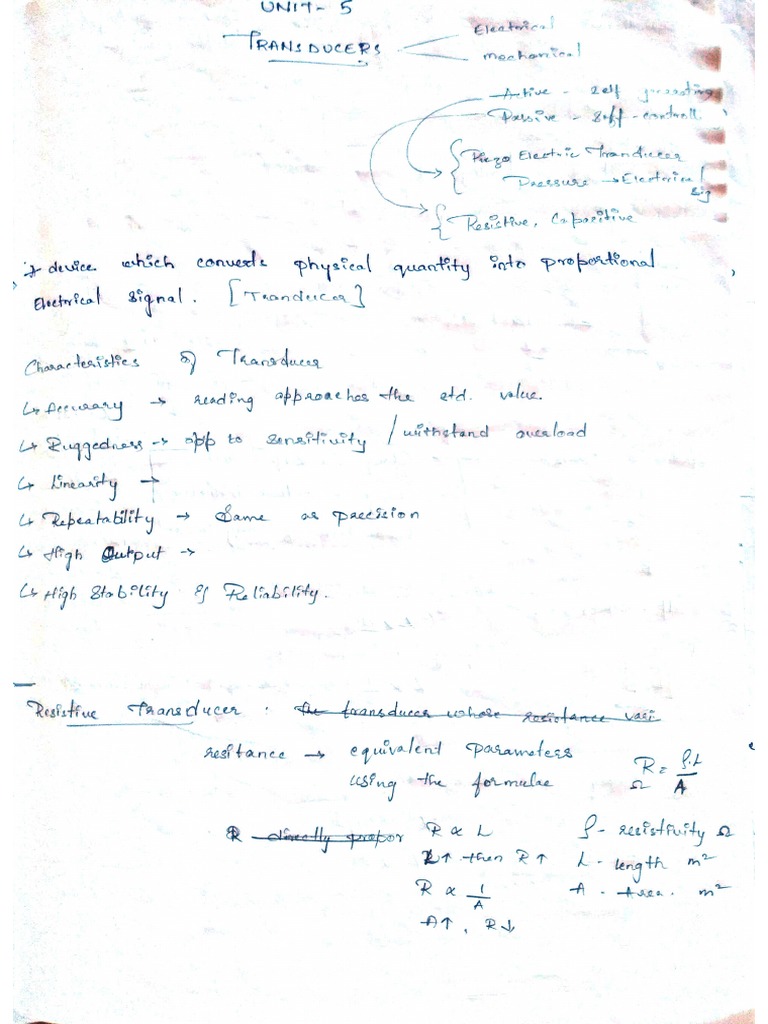 UNIT - 5
TRANSDUCERS
Electrical
mechanical
Active - Self generating
Passive - Self - controll
Piezo Electric Tranducer
Pressure → Electrical
sig
Resistive, Capacitive
* device which converts physical quantity into proportional
Electrical Signal. [Tranducer]
Characteristics of Transducer
↳ Accuracy → reading approaches the std. value.
↳ Ruggedness → opp to sensitivity / withstand overload
↳ Linearity →
↳ Repeatability → Same as precision
↳ High Output →
↳ High Stability & Reliability.
Resistive Transducer : the transducer whose resistance vari
resitance → equivalent Parameters
using the formulae
R = ρ.L / A
Ω
R directly propor R ∝ L ρ - resistivity Ω
L↑ then R↑ L - length m²
R ∝ 1/A A - Area. m²
A↑, R↓